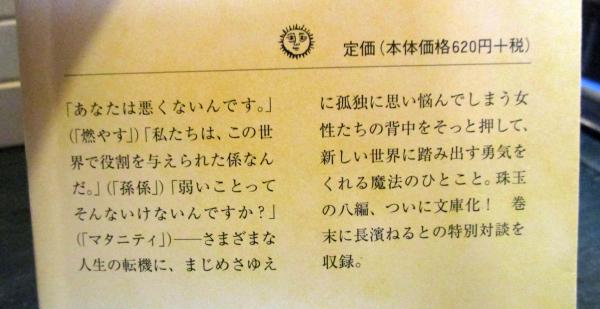 定価(本体価格620円+税)
「あなたは悪くないんです。」
(「燃やす」)「私たちは、この世
界で役割を与えられた係なん
だ。」(「孫係」)「弱いことって
そんないけないんですか?」
(「マタニティ」)――さまざまな
人生の転機に、まじめさゆえ
に孤独に思い悩んでしまう女
性たちの背中をそっと押して、
新しい世界に踏み出す勇気を
くれる魔法のひとこと。珠玉
の八編、ついに文庫化! 巻
末に長濱ねるとの特別対談を
収録。